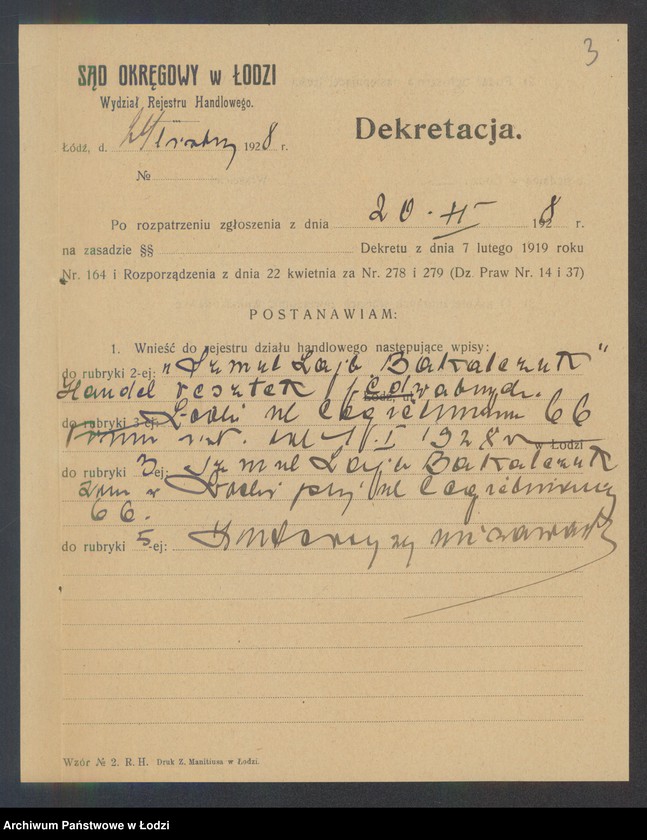 3
SĄD OKRĘGOWY w ŁODZI
Wydział Rejestru Handlowego.
Dekretacja.
Łódź, d. 24 1928 r.
№
Po rozpatrzeniu zgłoszenia z dnia 20. II 1928 r.
na zasadzie §§ Dekretu z dnia 7 lutego 1919 roku
Nr. 164 i Rozporządzenia z dnia 22 kwietnia za Nr. 278 i 279 (Dz. Praw Nr. 14 i 37)
POSTANAWIAM:
1. Wnieść do rejestru działu handlowego następujące wpisy:
do rubryki 2-ej: "Szmul Lajb Bakalczuk"
Handel resztek
do rubryki 3-ej: Łodzi ul Cegielniana 66
Firma istn. od 1. I 1928 r w Łodzi
do rubryki 3-ej: Szmul Lajb Bakalczuk
zam w Łodzi przy ul Cegielnianej
66.
do rubryki 5-ej: Intercyzy nie zawarł
Wzór № 2. R. H. Druk Z. Manitiusa w Łodzi.
Archiwum Państwowe w Łodzi